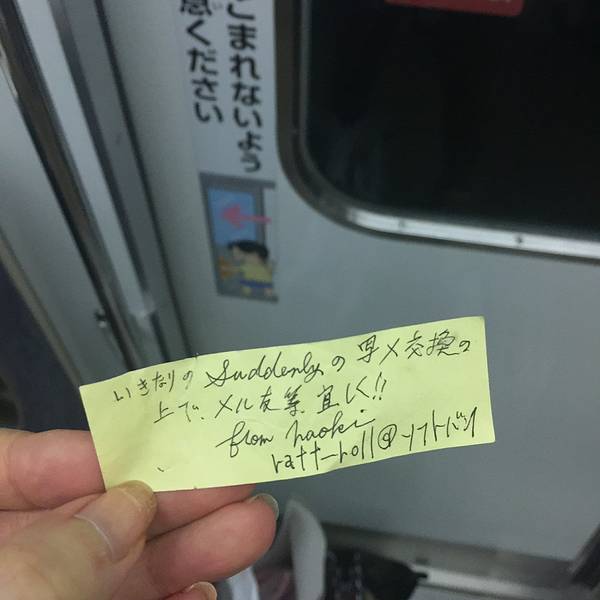 こまれないよう
意ください
いきなりの suddenlyの 写メ交換の
上で、メル友等、宜しく!!
from naoki
ratt-roll@ソフトバンク